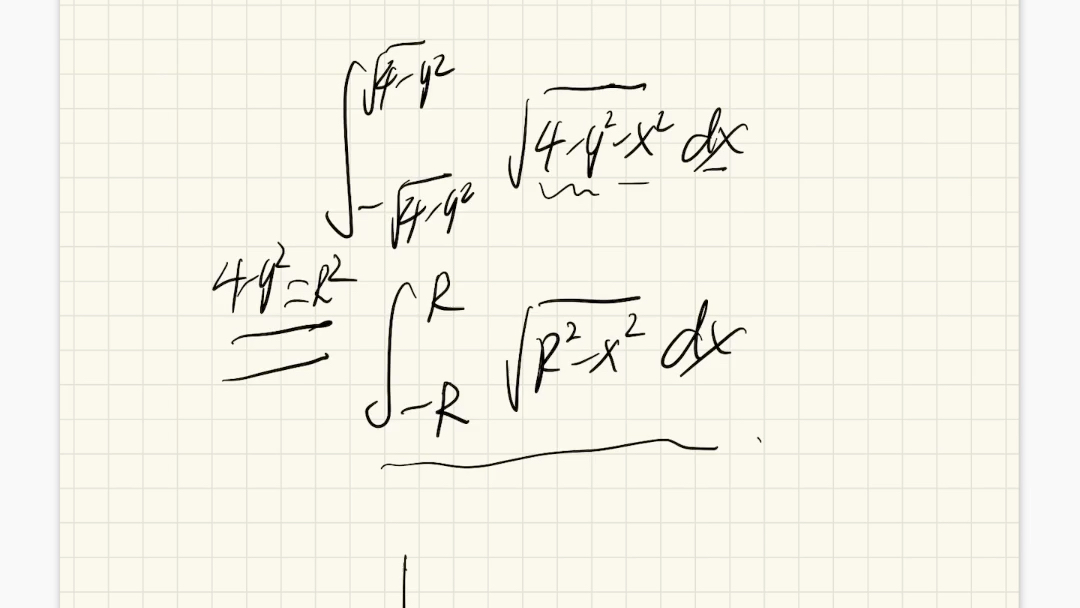 ∫_{-√(4-y²)}^{√(4-y²)} √(4-y²-x²) dx
4-y²=R²
= ∫_{-R}^{R} √(R²-x²) dx